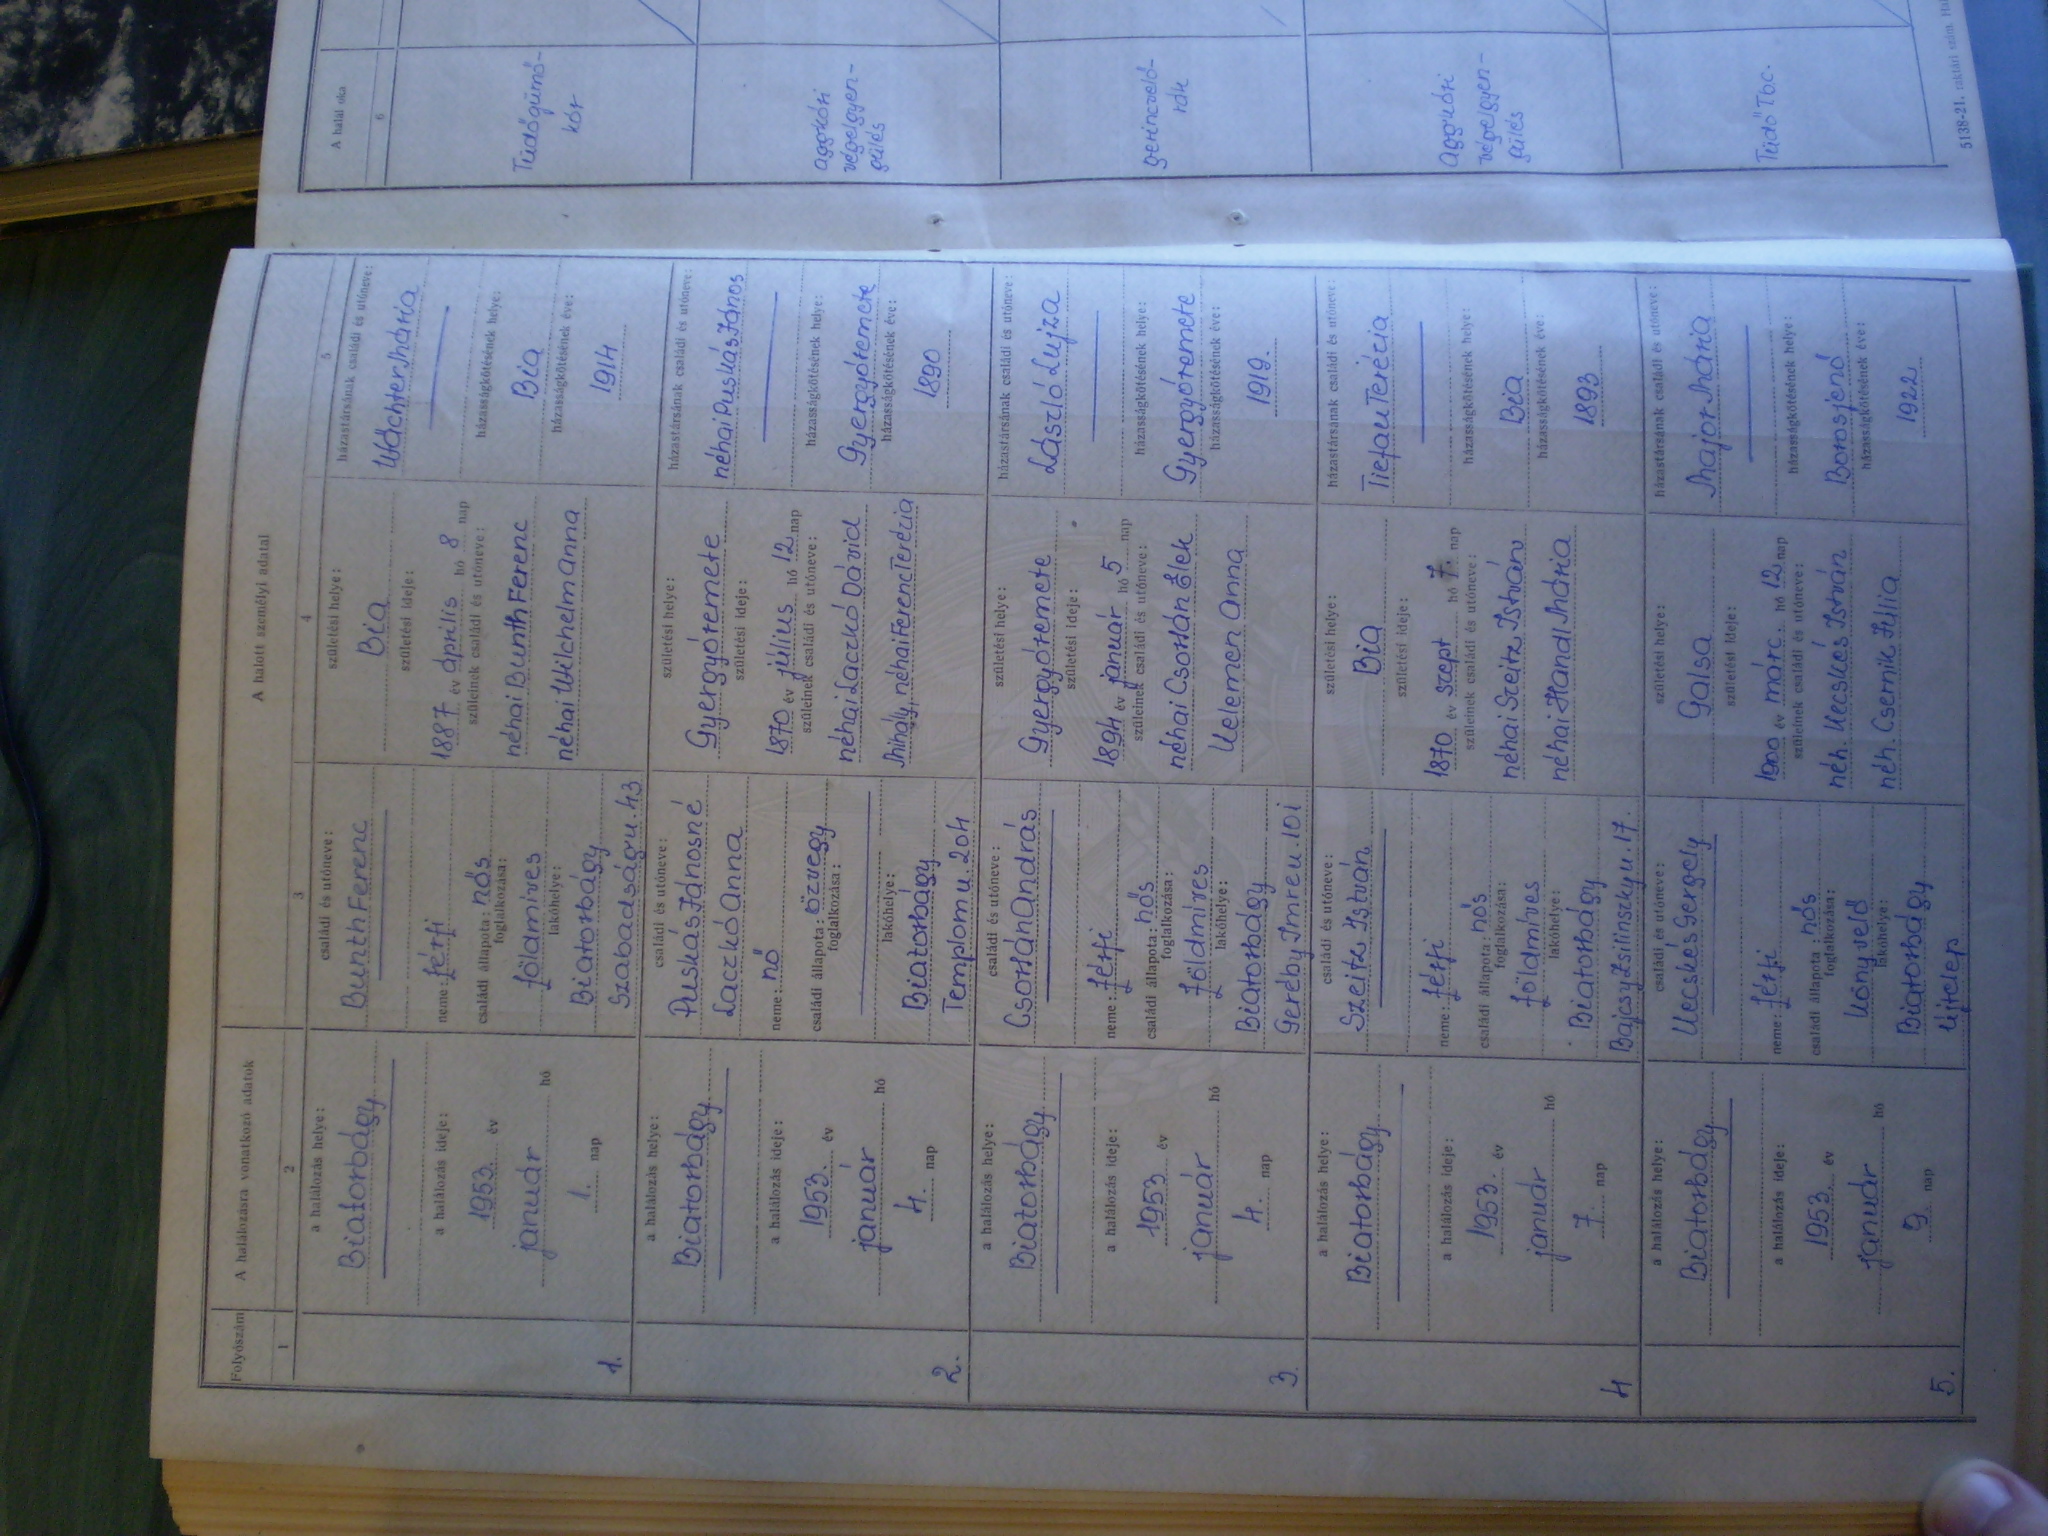 A halálozásra vonatkozó adatok
A halott személyi adatai
Folyószám
1
2
3
4
5
A halál oka
6
a halálozás helye:
Biatorbágy
a halálozás ideje:
1953. év
január hó
1. nap
1.
családi és utóneve:
Bunth Ferenc
neme: férfi
családi állapota: nős
foglalkozása:
földmíves
lakóhelye:
Biatorbágy
Szabadság u. 43
születési helye:
Bia
születési ideje:
1887 év április hó 8 nap
szüleinek családi és utóneve:
néhai Bunth Ferenc
néhai Wilchelm Anna
házastársának családi és utóneve:
Wachter Mária
házasságkötésének helye:
Bia
házasságkötésének éve:
1914
Tüdőgümő-
kór
a halálozás helye:
Biatorbágy
a halálozás ideje:
1953. év
január hó
4. nap
2.
családi és utóneve:
Puskás Jánosné
Laczkó Anna
neme: nő
családi állapota: özvegy
foglalkozása:
lakóhelye:
Biatorbágy
Templom u. 204
születési helye:
Gyergyóremete
születési ideje:
1870 év július hó 12 nap
szüleinek családi és utóneve:
néhai Laczkó Dávid
Mihály, néhai Ferenc Terézia
házastársának családi és utóneve:
néhai Puskás János
házasságkötésének helye:
Gyergyóremete
házasságkötésének éve:
1890
aggkóri
végelgyen-
gülés
a halálozás helye:
Biatorbágy
a halálozás ideje:
1953 év
január hó
4. nap
3.
családi és utóneve:
Csortán András
neme: férfi
családi állapota: nős
foglalkozása:
földmíves
lakóhelye:
Biatorbágy
Geréby Imre u. 101
születési helye:
Gyergyóremete
születési ideje:
1894 év január hó 5 nap
szüleinek családi és utóneve:
néhai Csortán Elek
Kelemen Anna
házastársának családi és utóneve:
László Lujza
házasságkötésének helye:
Gyergyóremete
házasságkötésének éve:
1919.
gerincvelő-
rák
a halálozás helye:
Biatorbágy
a halálozás ideje:
1953. év
január hó
7. nap
4
családi és utóneve:
Szeitz István
neme: férfi
családi állapota: nős
foglalkozása:
földmíves
lakóhelye:
Biatorbágy
Bajcsy Zsilinsky u. 17.
születési helye:
Bia
születési ideje:
1870 év szept hó 7. nap
szüleinek családi és utóneve:
néhai Szeitz István
néhai Handl Mária
házastársának családi és utóneve:
Tiefau Terézia
házasságkötésének helye:
Bia
házasságkötésének éve:
1893
aggkóri
végelgyen-
gülés
a halálozás helye:
Biatorbágy
a halálozás ideje:
1953. év
január hó
9. nap
5.
családi és utóneve:
Kecskés Gergely
neme: férfi
családi állapota: nős
foglalkozása:
könyvelő
lakóhelye:
Biatorbágy
Ujtelep
születési helye:
Galsa
születési ideje:
1900 év márc. hó 12 nap
szüleinek családi és utóneve:
néh. Kecskés István
néh. Csernik Júlia
házastársának családi és utóneve:
Major Mária
házasságkötésének helye:
Borosjenő
házasságkötésének éve:
1922
Tüdő Tbc.
5138-21. raktári szám.